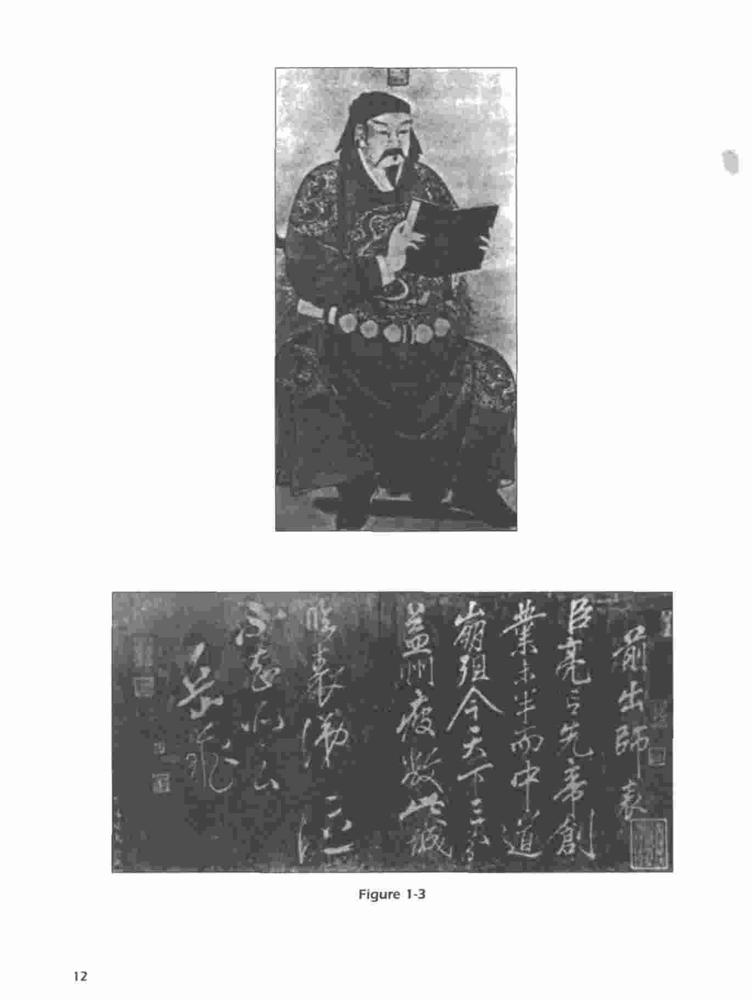 前出師表
臣亮言先帝創
業未半而中道
崩殂今天下三分
益州疲敝此誠
臨表涕泣
不知所云
岳飛
Figure 1-3
12